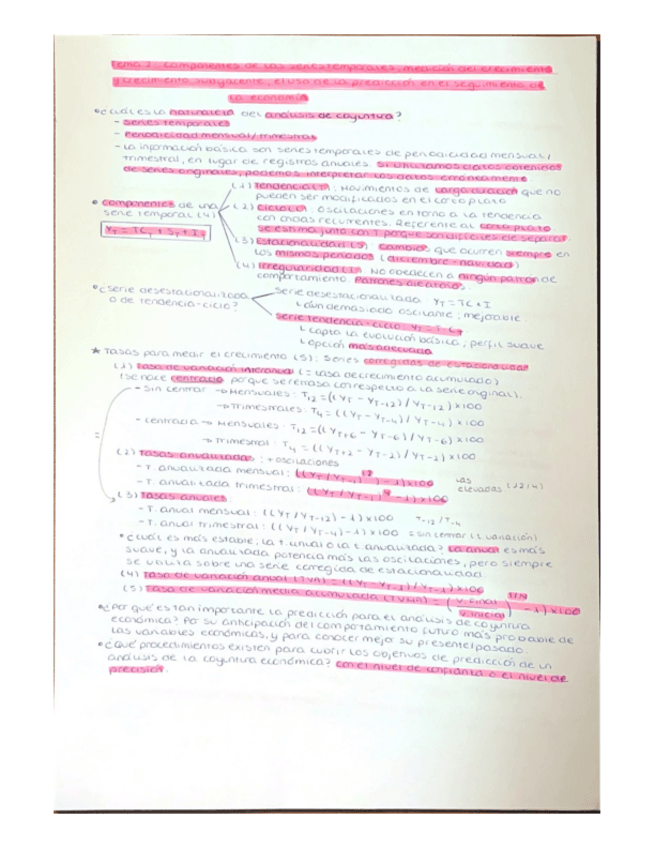 Tema 2: componentes de las series temporales, medición del crecimiento
y crecimiento subyacente, el uso de la predicción en el seguimiento de
la economía
• ¿Cuál es la naturaleza del análisis de coyuntura?
- Series temporales
- Periodicidad mensual/trimestral
- La información básica son series temporales de periodicidad mensual/
trimestral, en lugar de registros anuales. Si utilizamos datos obtenidos
de series originales, podemos interpretar los datos erróneamente
(1) Tendencia(T): Movimientos de larga duración que no
pueden ser modificados en el corto plazo
• componentes de una
serie temporal (4)
YT = TCT + ST + IT
(2) Ciclo(C): Oscilaciones en torno a la tendencia
con ondas recurrentes. Referente al corto plazo
se estima junto con T porque son difíciles de separar
(3) Estacionalidad (S): Cambios que ocurren siempre en
los mismos periodos (diciembre-navidad)
(4) Irregularidad (I): No obedecen a ningún patrón de
comportamiento. Patrones aleatorios.
• ¿Serie desestacionalizada
o de tendencia-ciclo?
Serie desestacionalizada YT = TC + I
↳ aún demasiado oscilante; mejorable
Serie tendencia-ciclo: YT =
↳ capta la evolución básica, perfil suave
↳ opción más adecuada
★ Tasas para medir el crecimiento (5): Series corregidas de estacionalidad
(1) Tasa de variación interanual (= tasa de crecimiento acumulado)
(se hace centrada porque se retrasa con respecto a la serie original).
- Sin centrar → Mensuales: T12 = ((YT - YT-12) / YT-12) × 100
→ Trimestrales: T4 = ((YT - YT-4) / YT-4) × 100
- Centrada → Mensuales: T12 = ((YT+6 - YT-6) / YT-6) × 100
→ Trimestral: T4 = ((YT+2 - YT-2) / YT-2) × 100
=
(2) Tasas anualizadas: + oscilaciones
- T. anualizada mensual: ((YT / YT-1)^12 - 1) × 100
- T. anualizada trimestral: ((YT / YT-1)^4 - 1) × 100
las
elevadas (12/4)
(3) Tasas anuales
- T. anual mensual: ((YT / YT-12) - 1) × 100 T-12 / T-4
- T. anual trimestral: ((YT / YT-4) - 1) × 100 = sin centrar (t. variación)
• ¿Cuál es más estable, la t. anual o la t. anualizada? La anual es más
suave, y la anualizada potencia más las oscilaciones, pero siempre
se valúa sobre una serie corregida de estacionalidad.
(4) Tasa de variación anual (TVA) = ((YT - YT-1) / YT-1) × 100
(5) Tasa de variación media acumulada (TVMA) = ((V. Final / V. inicial)^1/N - 1) × 100
• ¿Por qué es tan importante la predicción para el análisis de coyuntura
económica? Por su anticipación del comportamiento futuro más probable de
las variables económicas, y para conocer mejor su presente/pasado.
• ¿Qué procedimientos existen para cubrir los objetivos de predicción de un
análisis de la coyuntura económica? Con el nivel de confianza o el nivel de
precisión.